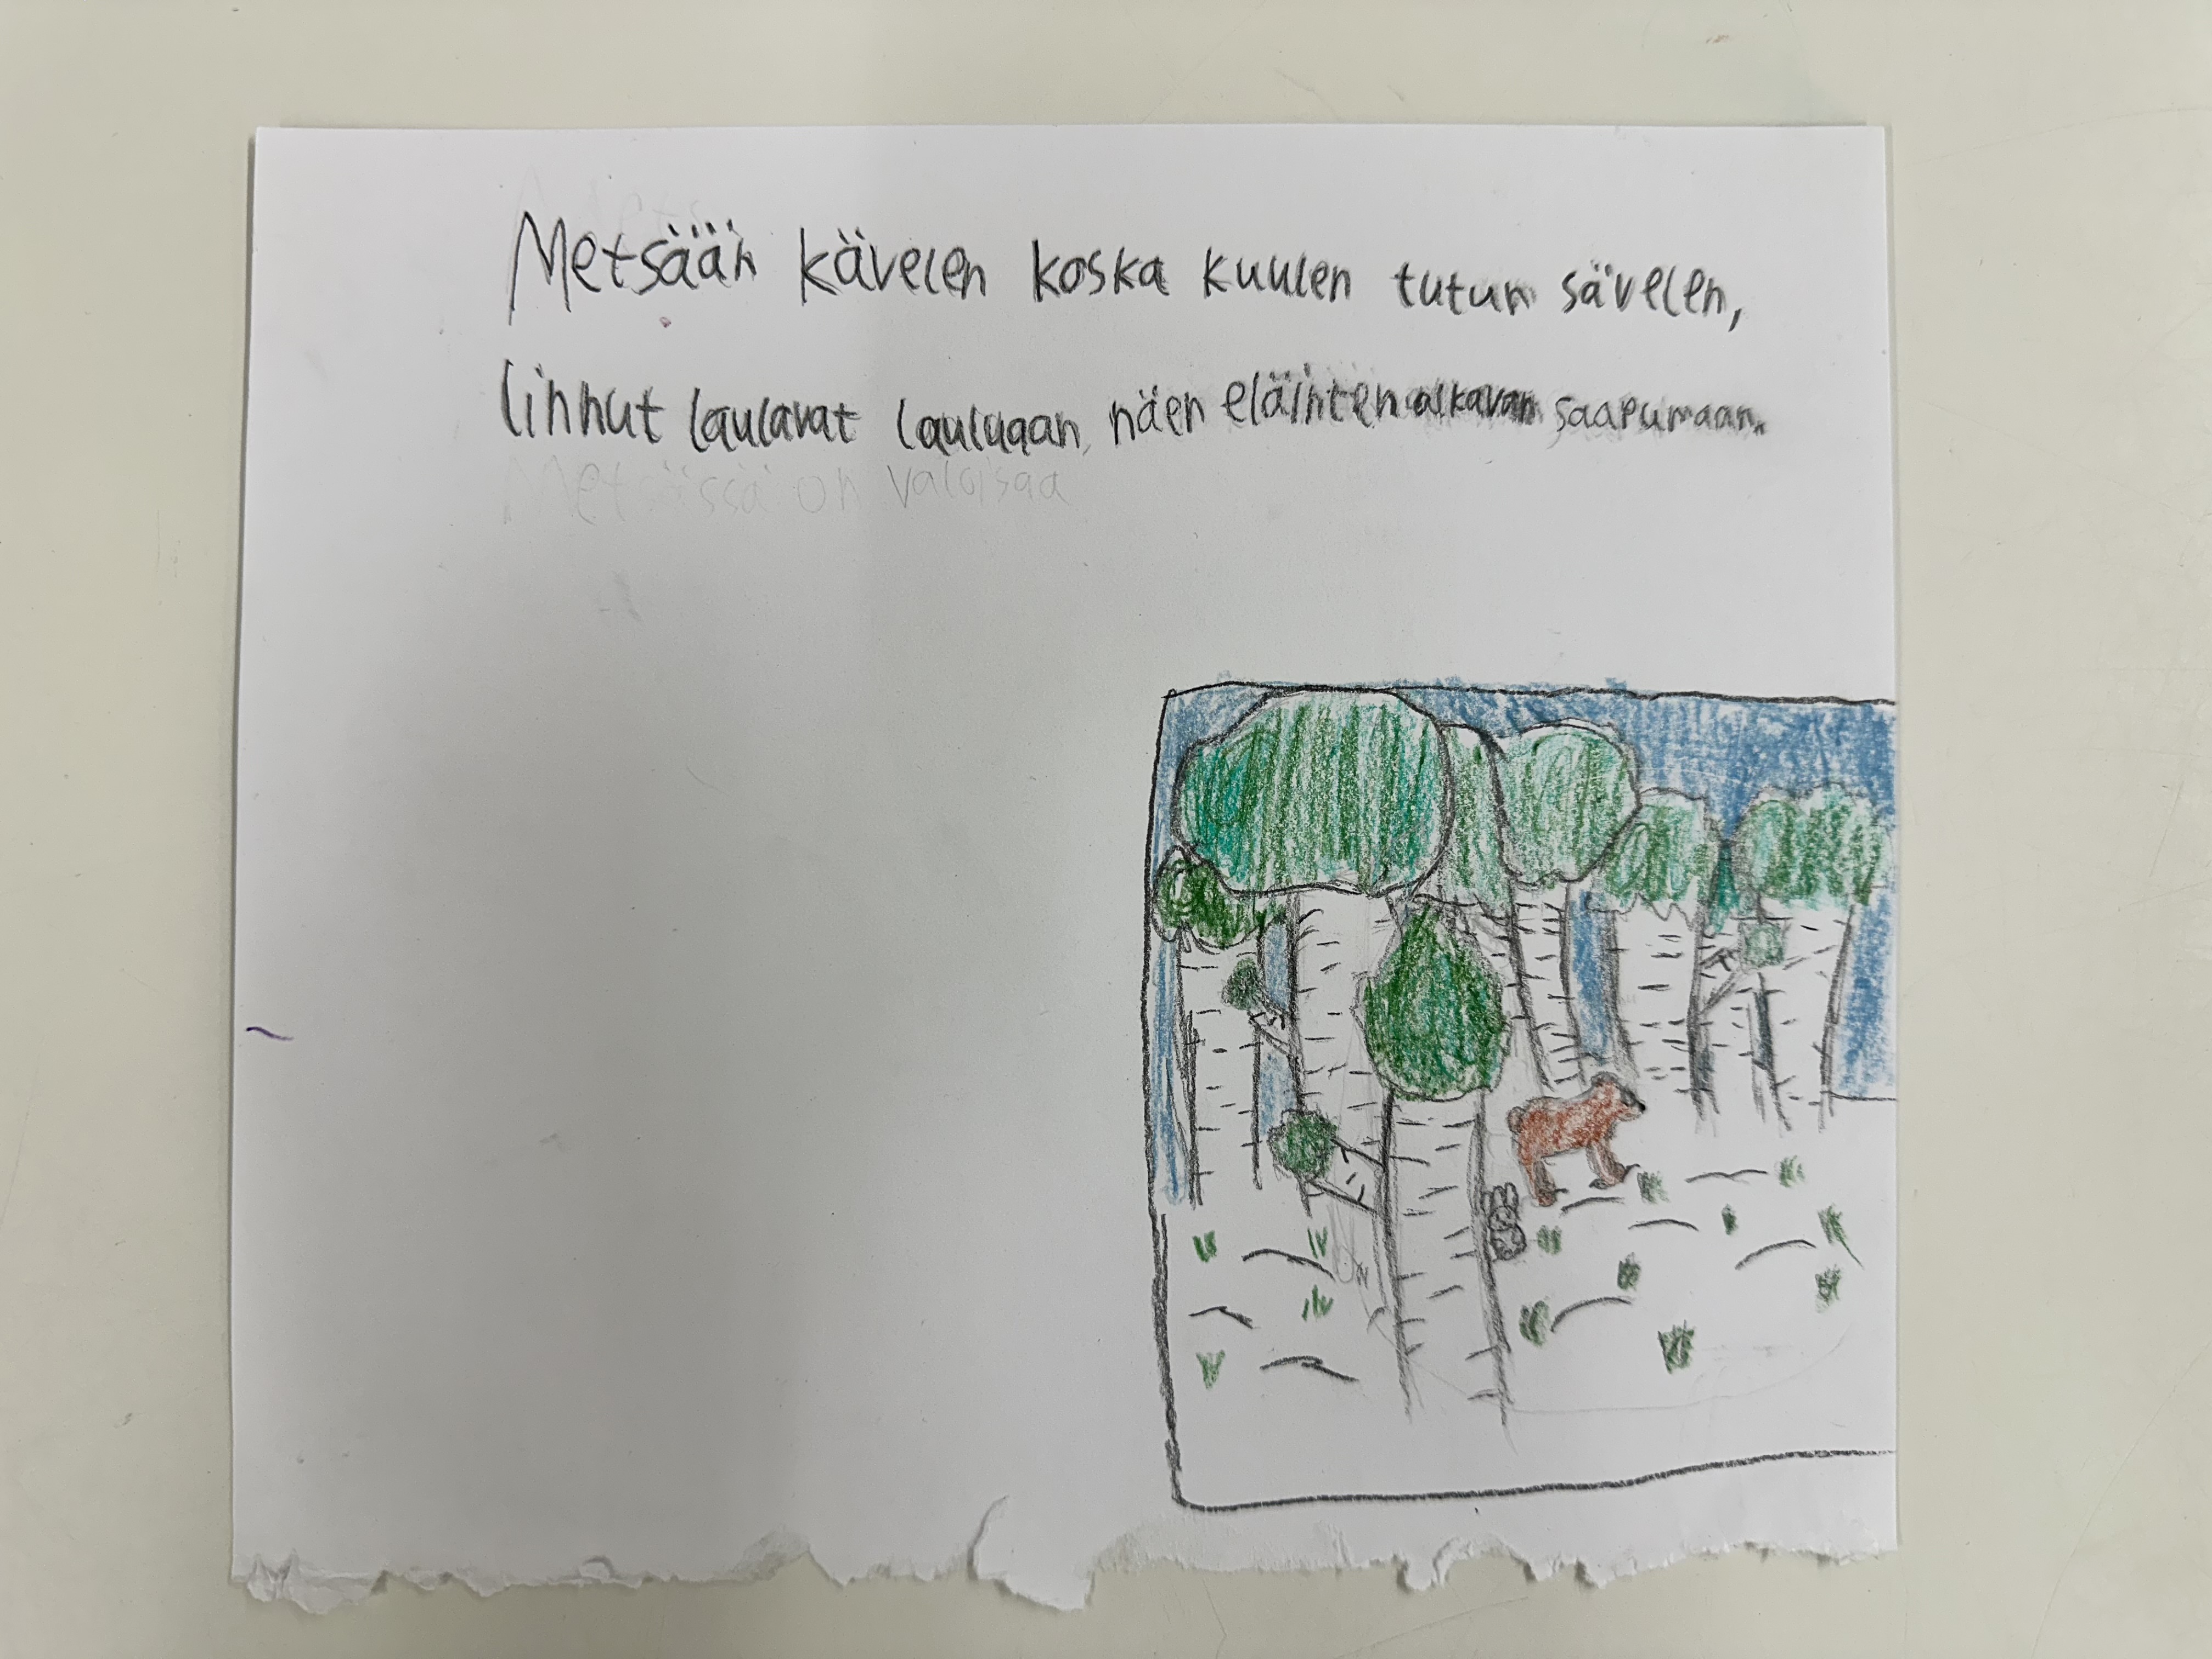 Metsään kävelen koska kuulen tutun sävelen,
linnut laulavat laulujaan, näen eläinten alkavan saapumaan.
Metsässä on valoisaa